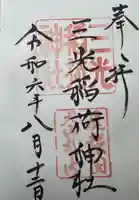 奉拝
三光稲荷神社
令和六年八月十二日